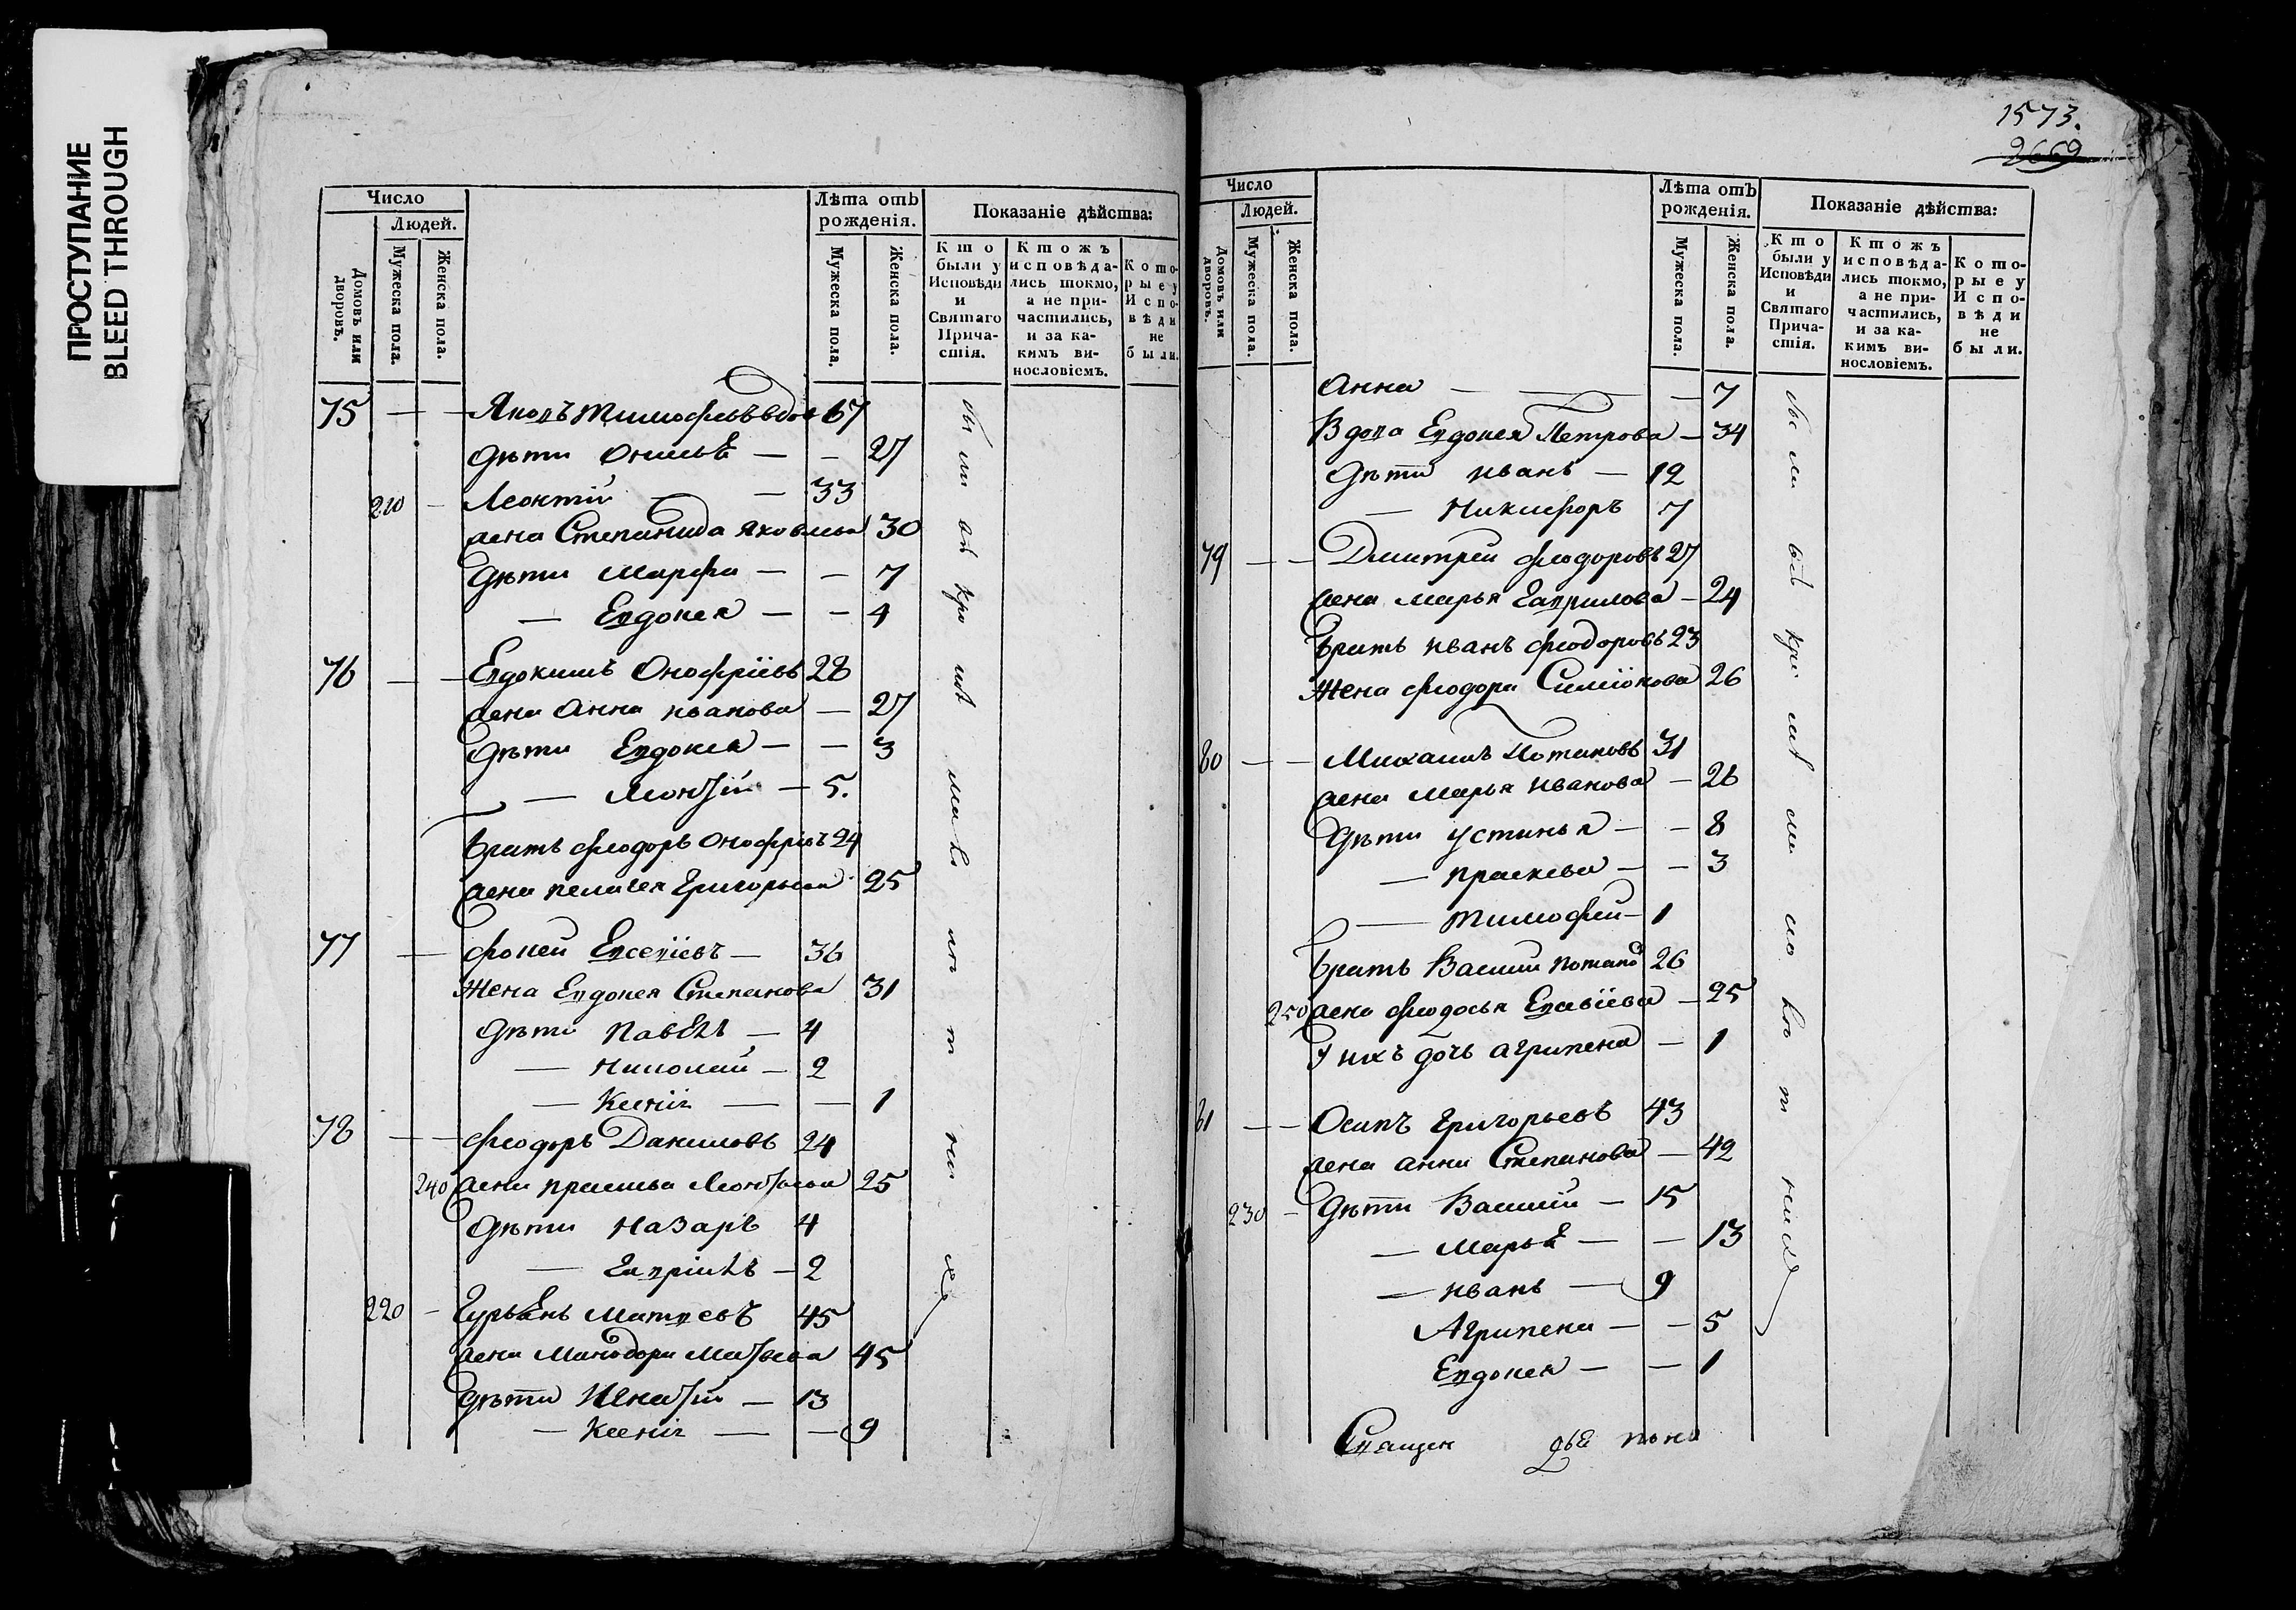 ПРОСТУПАНИЕ
BLEED THROUGH
Число
Людей.
Домовъ или дворовъ.
Мужеска пола.
Женска пола.
Лѣта отъ рожденія.
Мужеска пола.
Женска пола.
Показаніе дѣйства:
Кто были у Исповѣди и Святаго Причастія.
Ктожъ исповѣдались токмо, а не причастились, и за какимъ винословіемъ.
Которые у Исповѣди не были.
75 — — Яковъ Тимофѣевъ вдов 67
Дѣти — — 27
210 — Леонтій — 33
жена Степанида Яковлева 30
Дѣти Марфа — — 7
— Евдокея — — 4
76 — — Евдокимъ Онофріевъ 28
жена Анна Иванова — 27
Дѣти Евдокея — — 3
— Леонтій — 5.
братъ Феодоръ Онофріевъ 24
жена Пелагея Григорьева 25
77 — Фокей Евсевіевъ — 36
Жена Евдокея Степанова 31
Дѣти Павелъ — 4
— Николай — 2
— Ксенія — — 1
78 — — Феодоръ Даниловъ 24
240 жена Праскева Леонтьева 25
Дѣти Назаръ 4
— Гавріилъ — 2
220 — Гурьянъ Матвеевъ 45
жена Минодора Матвеева 45
Дѣти Игнатій — 13
— Ксенія — — 9
1573.
2669
Число
Людей.
Домовъ или дворовъ.
Мужеска пола.
Женска пола.
Лѣта отъ рожденія.
Мужеска пола.
Женска пола.
Показаніе дѣйства:
Кто были у Исповѣди и Святаго Причастія.
Ктожъ исповѣдались токмо, а не причастились, и за какимъ винословіемъ.
Которые у Исповѣди не были.
Анна — — — 7
Вдова Евдокея Петрова — 34
Дѣти Иванъ — 12
— Никифоръ 7
79 — — Дмитрей Феодоровъ 27
жена Марья Гаврилова — 24
братъ Иванъ Феодоровъ 23
Жена Феодора Симіонова 26
80 — — Михаилъ Потаповъ 31
жена Марья Иванова — 26
Дѣти Устинья — — 8
— Праскева — — 3
— Тимофей — 1
братъ Василій Потапов 26
250 жена Феодосья Евсевіева — 25
У нихъ дочь Агрипена — 1
81 — — Осипъ Григорьевъ 43
жена Анна Степанова — 42
230 — Дѣти Василій — 15
— Марья — — 13
— Иванъ — 9
Агрипена — — 5
Евдокея — — 1